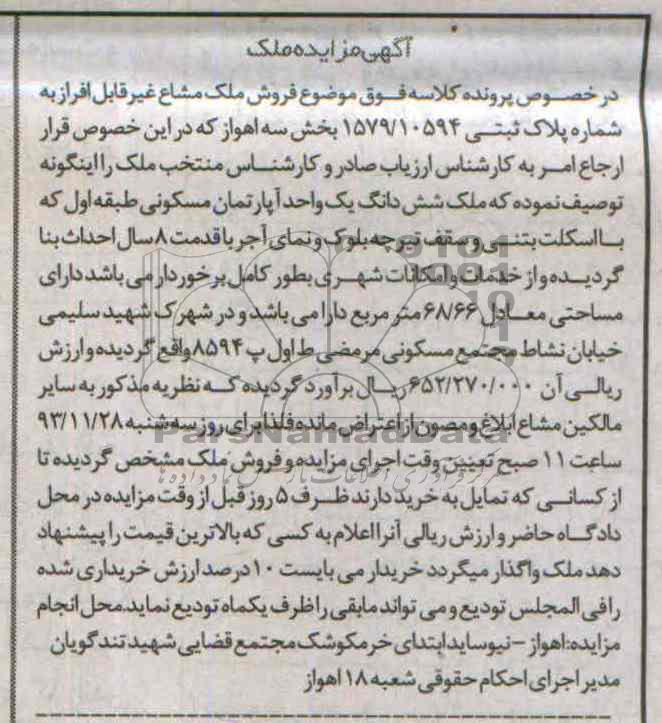 آگهی مزایده ملک
در خصوص پرونده کلاسه فوق موضوع فروش ملک مشاع غیر قابل افراز به
شماره پلاک ثبتی ۱۵۷۹/۱۰۵۹۴ بخش سه اهواز که در این خصوص قرار
ارجاع امر به کارشناس ارزیاب صادر و کارشناس منتخب ملک را اینگونه
توصیف نموده که ملک شش دانگ یک واحد آپارتمان مسکونی طبقه اول که
با اسکلت بتنی و سقف تیرچه بلوک و نمای آجر با قدمت ۸ سال احداث بنا
گردیده و از خدمات و امکانات شهری بطور کامل برخوردار می باشد دارای
مساحتی معادل ۶۸/۶۶ متر مربع دارا می باشد و در شهرک شهید سلیمی
خیابان نشاط مجتمع مسکونی مرمضی ط اول پ ۸۵۹۴ واقع گردیده و ارزش
ریالی آن ۶۵۲/۲۷۰/۰۰۰ ریال برآورد گردیده که نظریه مذکور به سایر
مالکین مشاع ابلاغ و مصون از اعتراض مانده فلذا برای روز سه شنبه ۹۳/۱۱/۲۸
ساعت ۱۱ صبح تعیین وقت اجرای مزایده و فروش ملک مشخص گردیده تا
از کسانی که تمایل به خرید دارند ظرف ۵ روز قبل از وقت مزایده در محل
دادگاه حاضر و ارزش ریالی آنرا اعلام به کسی که بالاترین قیمت را پیشنهاد
دهد ملک واگذار میگردد خریدار می بایست ۱۰ درصد ارزش خریداری شده
را فی المجلس تودیع و می تواند مابقی را ظرف یکماه تودیع نماید. محل انجام
مزایده: اهواز - نیوساید ابتدای خرمکوشک مجتمع قضایی شهید تندگویان
مدیر اجرای احکام حقوقی شعبه ۱۸ اهواز
ParsNamadData